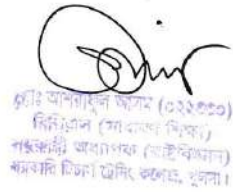 মোঃ আশরাফুল আলম (০২২৩৩০)
বিসিএস (সাধারণ শিক্ষা)
সহকারী অধ্যাপক (প্রাণিবিজ্ঞান)
সরকারি টিচার্স ট্রেনিং কলেজ, খুলনা।